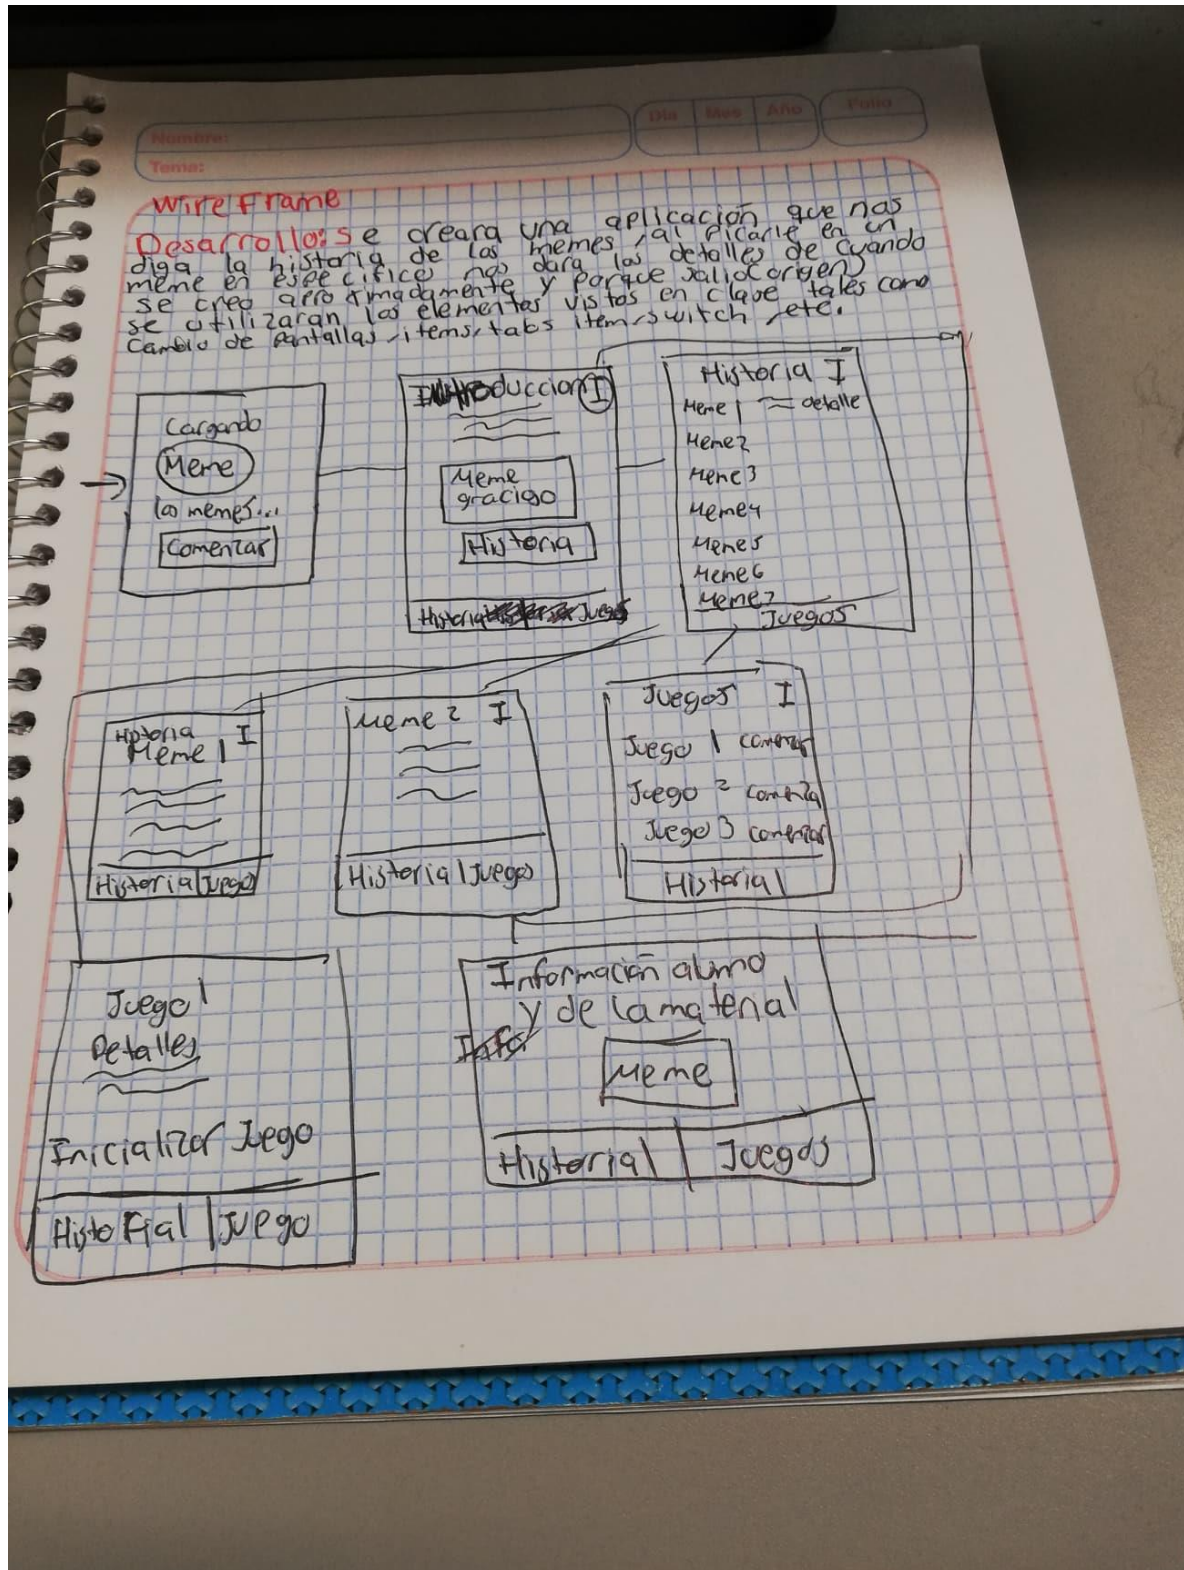 Nombre:
Tema:
Dia Mes Año
Folio
Wire Frame
Desarrollo: Se creara una aplicación que nos
diga la historia de los memes, al picarle en un
meme en especifico nos dara los detalles de cuando
se creo aproximadamente y porque salio (origen)
se utilizaran los elementos vistos en clase tales como
cambio de pantallas, items, tabs item, switch, etc.
Cargando
Meme
los memes...
Comenzar
Introduccion I
Meme
gracioso
Historia
Historia Juegos
Historia I
Meme 1 detalle
Meme2
Meme3
Meme4
Meme5
Meme6
Meme7
Juegos
Historia
Meme 1 I
Historia Juego
Meme 2 I
Historial Juegos
Juegos I
Juego 1 comenzar
Juego 2 comenza
Juego 3 comenzar
Historial
Juego 1
Detalles
Inicializar Juego
Historial Juego
Información alumno
y de la material
Meme
Historial Juegos